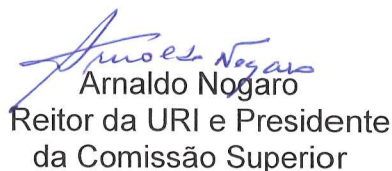 Arnaldo Nogaro
Arnaldo Nogaro
Reitor da URI e Presidente
da Comissão Superior